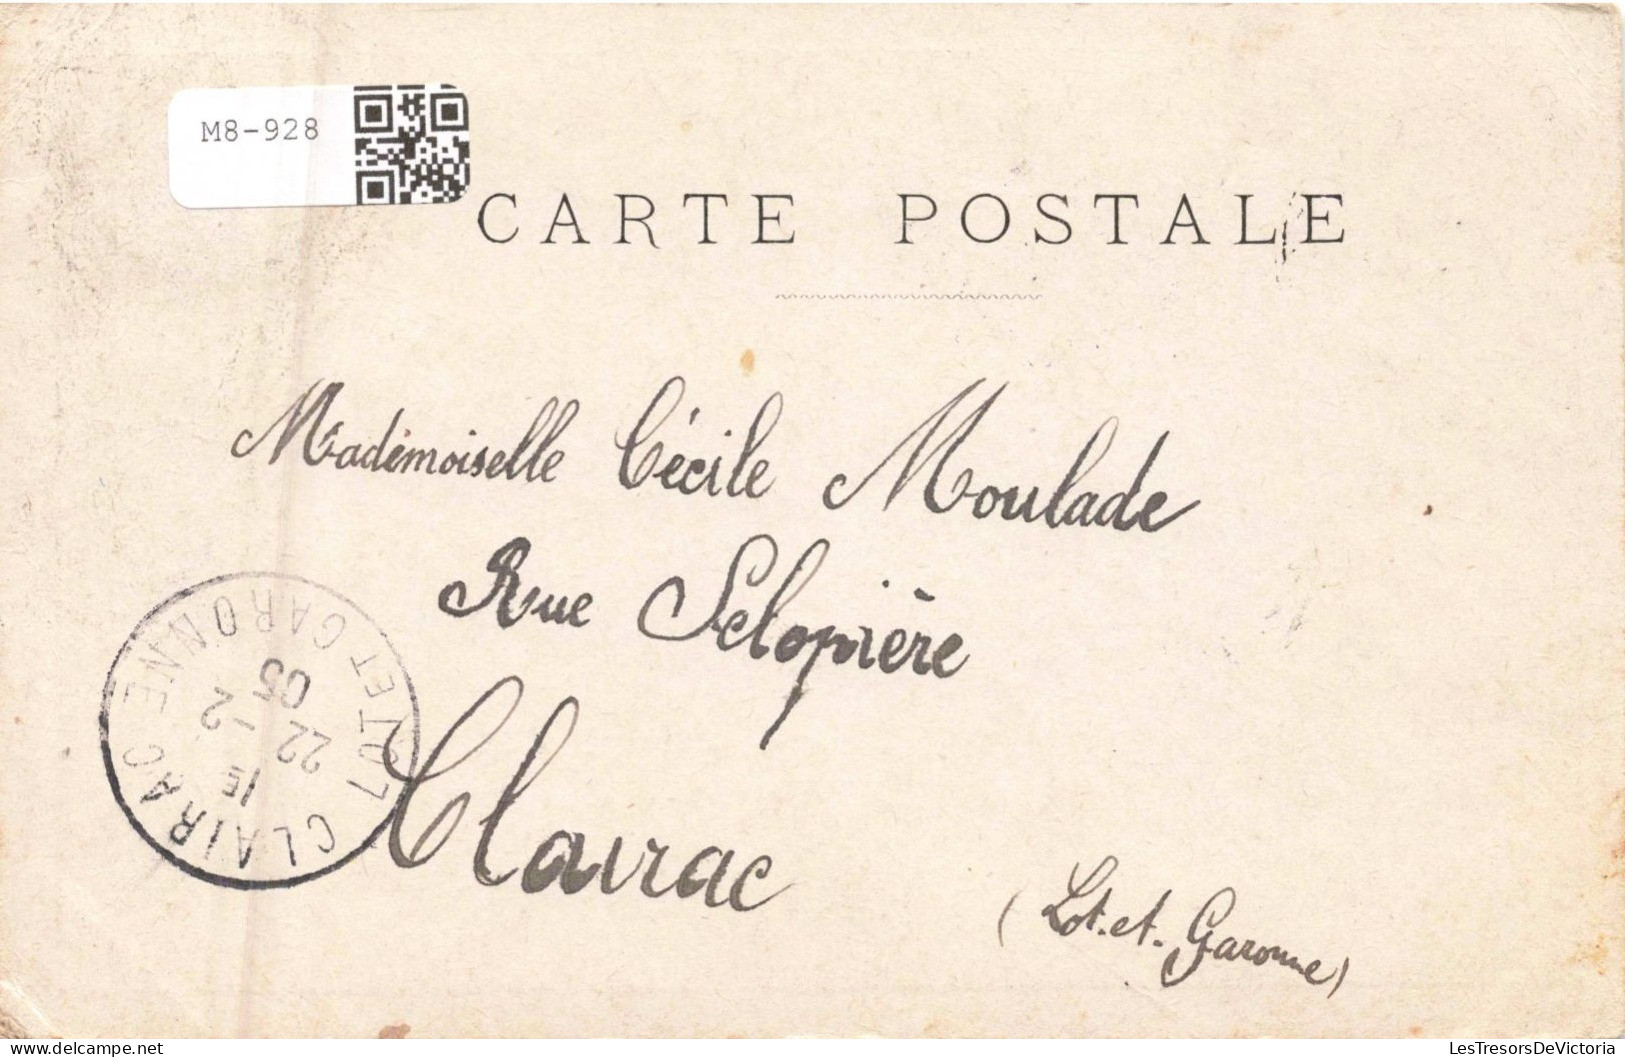 M8-928
CARTE POSTALE
Mademoiselle Cécile Moulade
Rue Selopière
Clairac
(Lot-et-Garonne)
CLAIRAC
LOT ET GARONNE
22 -2
05
LesTresorsDeVictoria